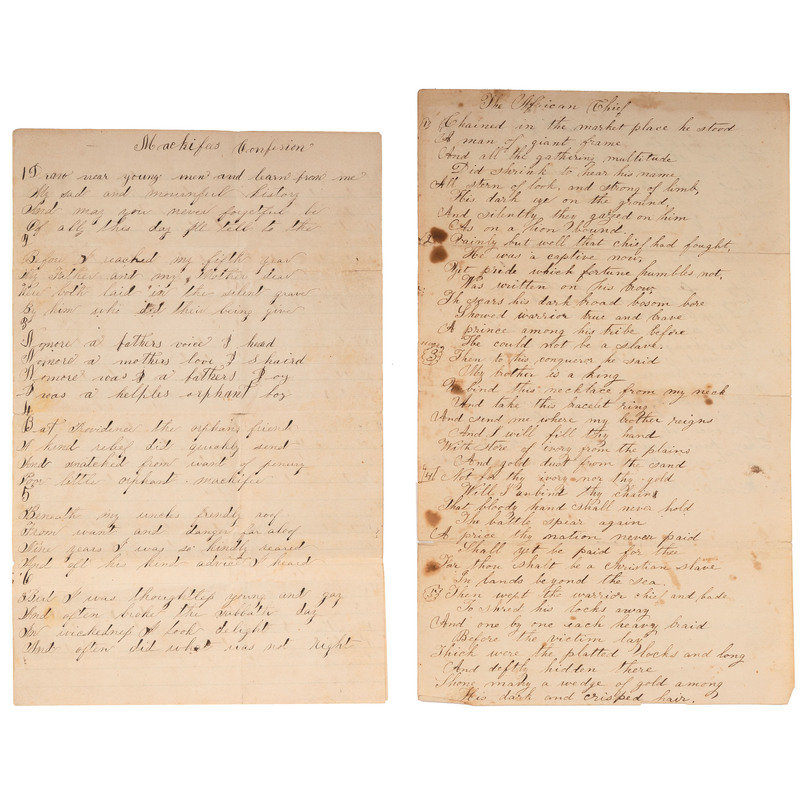 Mackifas Confesion
1 Draw near young men and learn from me
My sad and mournful history
And may you never forgetful be
Of all this day Ile tell to the
2
Before I reached my fifth year
My Father and my Mother dear
Were both laid in the silent grave
By him who did their being give
3
Nomore a fathers voice I heard
Nomore a mothers love I shaird
Nomore was I a fathers Joy
I was a helples orphant boy
4
But Providence the orphans friend
A kind relief did quickly send
And snatched from want of penury
Poor little orphant mackifee
5
Beneath my uncles frendly roof
From want and danger far aloof
Nine years I was so kindly reared
And oft his kind advice I heard
6
But I was thoughtless young and gay
And often broke the sabbath day
In wickedness I took delight
And often did what was not right
The African Chief
(1) Chained in the market place he stood
A man of giant frame
And all the gathering multitude
Did shrink to hear his name
All stern of look and strong of limb,
His dark eye on the ground,
And silently they gazed on him
As on a lion bound.
(2) Vainly but well that chief had fought,
He was a captive now,
Yet pride which fortune humbles not,
Was written on his brow
The scars his dark broad bosom bore
Showed warrior true and brave
A prince among his tribe before
He could not be a slave.
(3) Then to his conquerer he said
My brother is a king
Unbind this necklace from my neck
And take this bracelet ring
And send me where my brother reigns
And I will fill thy hand
With store of ivory from the plains
And gold dust from the sand
(4) Not for thy ivory nor thy gold
Will I unbind thy chains
That bloody hand shall never hold
The battle spear again
A price thy nation never paid
Shall yet be paid for thee
For thou shalt be a Christian slave
In lands beyond the sea
(5) Then wept the warrior chief and bade
To shred his locks away
And one by one each heavy braid
Before the victim lay
Thick were the platted locks and long
And deftly hidden there
Shone many a wedge of gold among
His dark and crisped hair.